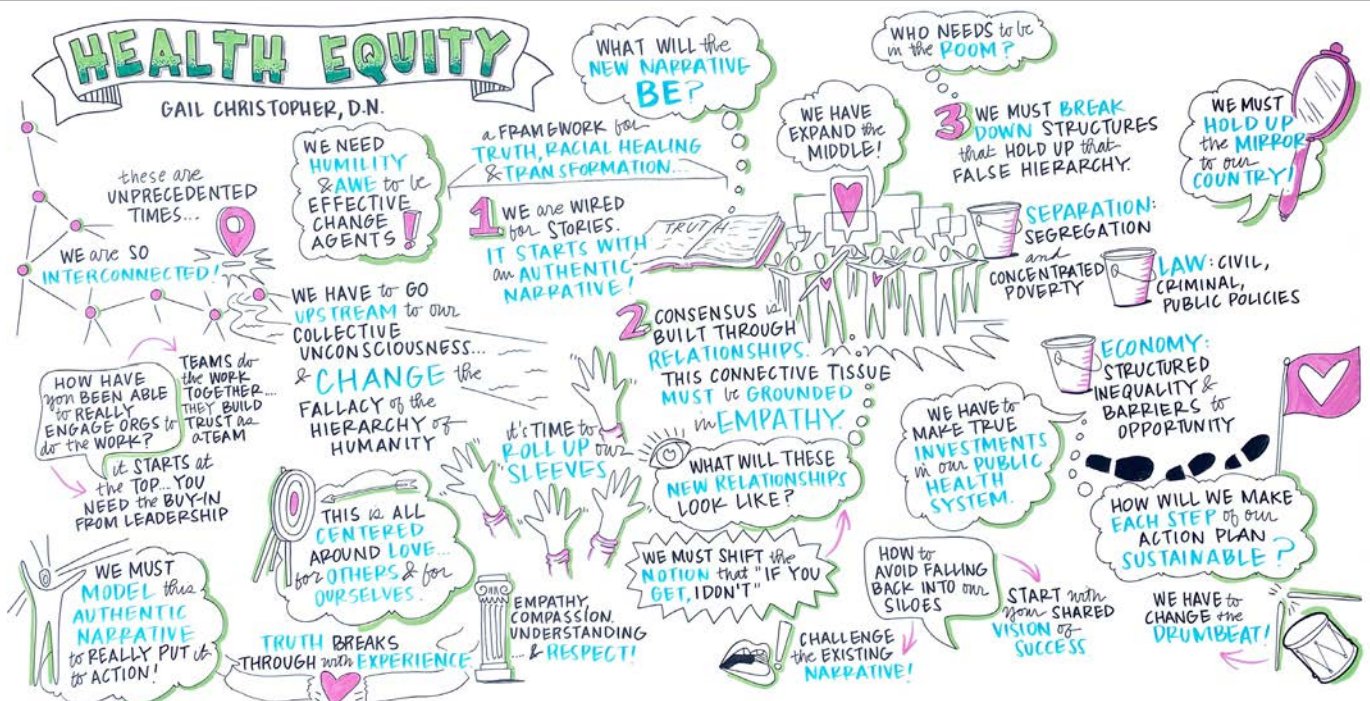 HEALTH EQUITY
GAIL CHRISTOPHER, D.N.
these are
UNPRECEDENTED
TIMES...
WE are SO
INTERCONNECTED!
WE NEED
HUMILITY
& AWE to be
EFFECTIVE
CHANGE
AGENTS!
WE HAVE to GO
UPSTREAM to our
COLLECTIVE
UNCONSCIOUSNESS...
& CHANGE the
FALLACY of the
HIERARCHY of
HUMANITY
HOW HAVE
you BEEN ABLE
to REALLY
ENGAGE ORGS to
do the WORK?
TEAMS do
the WORK
TOGETHER...
THEY BUILD
TRUST as
a TEAM
it STARTS at
the TOP... YOU
NEED the BUY-IN
FROM LEADERSHIP
WE MUST
MODEL this
AUTHENTIC
NARRATIVE
to REALLY PUT it
to ACTION!
THIS is ALL
CENTERED
AROUND LOVE...
for OTHERS & for
OURSELVES.
TRUTH BREAKS
THROUGH with EXPERIENCE
EMPATHY,
COMPASSION.
UNDERSTANDING
... & RESPECT!
WHAT WILL the
NEW NARRATIVE
BE?
a FRAMEWORK for
TRUTH, RACIAL HEALING
& TRANSFORMATION...
1 WE are WIRED
for STORIES.
IT STARTS WITH
an AUTHENTIC
NARRATIVE!
TRUTH
2 CONSENSUS is
BUILT THROUGH
RELATIONSHIPS.
THIS CONNECTIVE TISSUE
MUST be GROUNDED
in EMPATHY.
it's TIME to
ROLL UP our
SLEEVES
WHAT WILL THESE
NEW RELATIONSHIPS
LOOK LIKE?
WE MUST SHIFT the
NOTION that "IF YOU
GET, I DON'T"
CHALLENGE
the EXISTING
NARRATIVE!
WE HAVE
EXPAND the
MIDDLE!
WHO NEEDS to be
in the ROOM?
3 WE MUST BREAK
DOWN STRUCTURES
that HOLD UP that
FALSE HIERARCHY.
WE MUST
HOLD UP
the MIRROR
to our
COUNTRY!
SEPARATION:
SEGREGATION
and
CONCENTRATED
POVERTY
LAW: CIVIL,
CRIMINAL,
PUBLIC POLICIES
ECONOMY:
STRUCTURED
INEQUALITY &
BARRIERS to
OPPORTUNITY
WE HAVE to
MAKE TRUE
INVESTMENTS
in our PUBLIC
HEALTH
SYSTEM.
HOW WILL WE MAKE
EACH STEP of our
ACTION PLAN
SUSTAINABLE?
HOW to
AVOID FALLING
BACK INTO our
SILOES
START with
your SHARED
VISION of
SUCCESS
WE HAVE to
CHANGE the
DRUMBEAT!